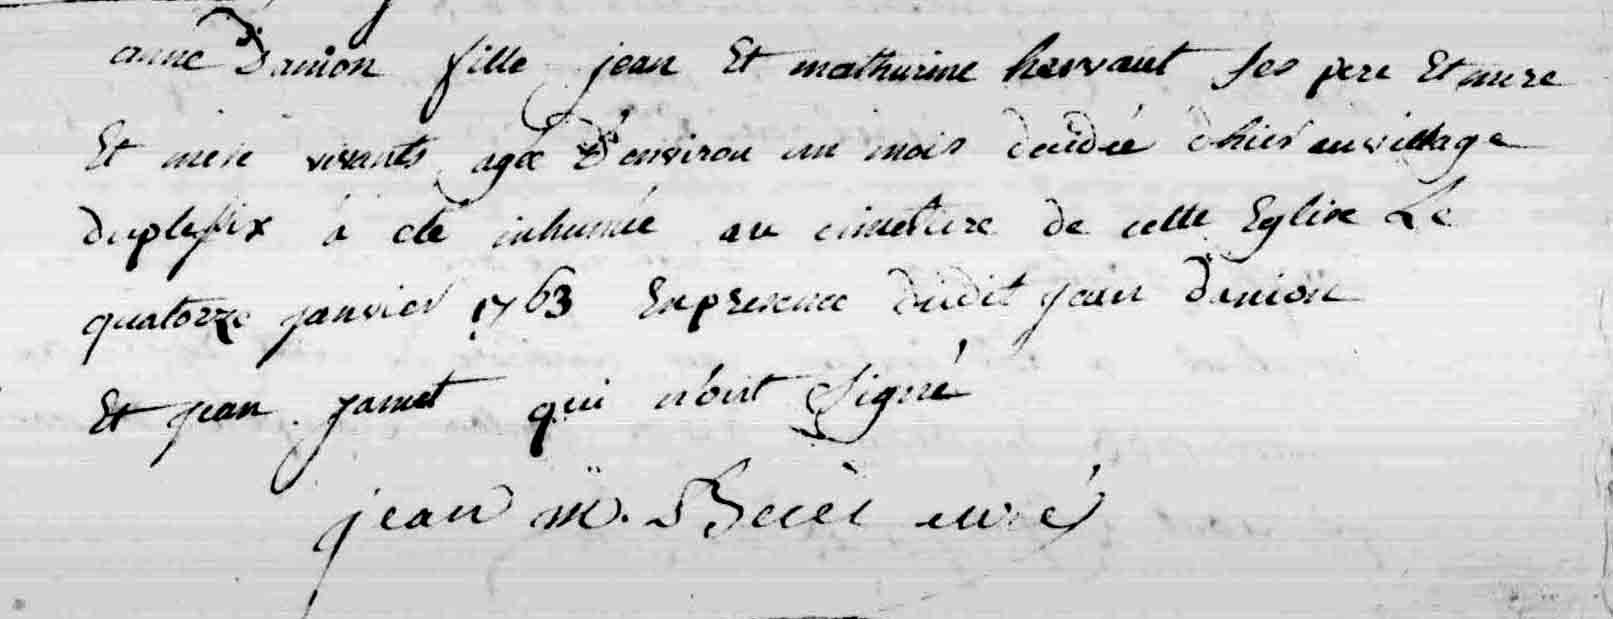 anne Danion fille jean Et mathurine hervaut ses pere Et mere
Et mere vivants agée D'environ un mois decidée d'hier au village
duplessix à eté inhumée au cimetiere de cette Eglise Le
quatorze janvier 1763 En presence dudit jean danion
Et jean jamet qui n'ont signé
jean m. curé